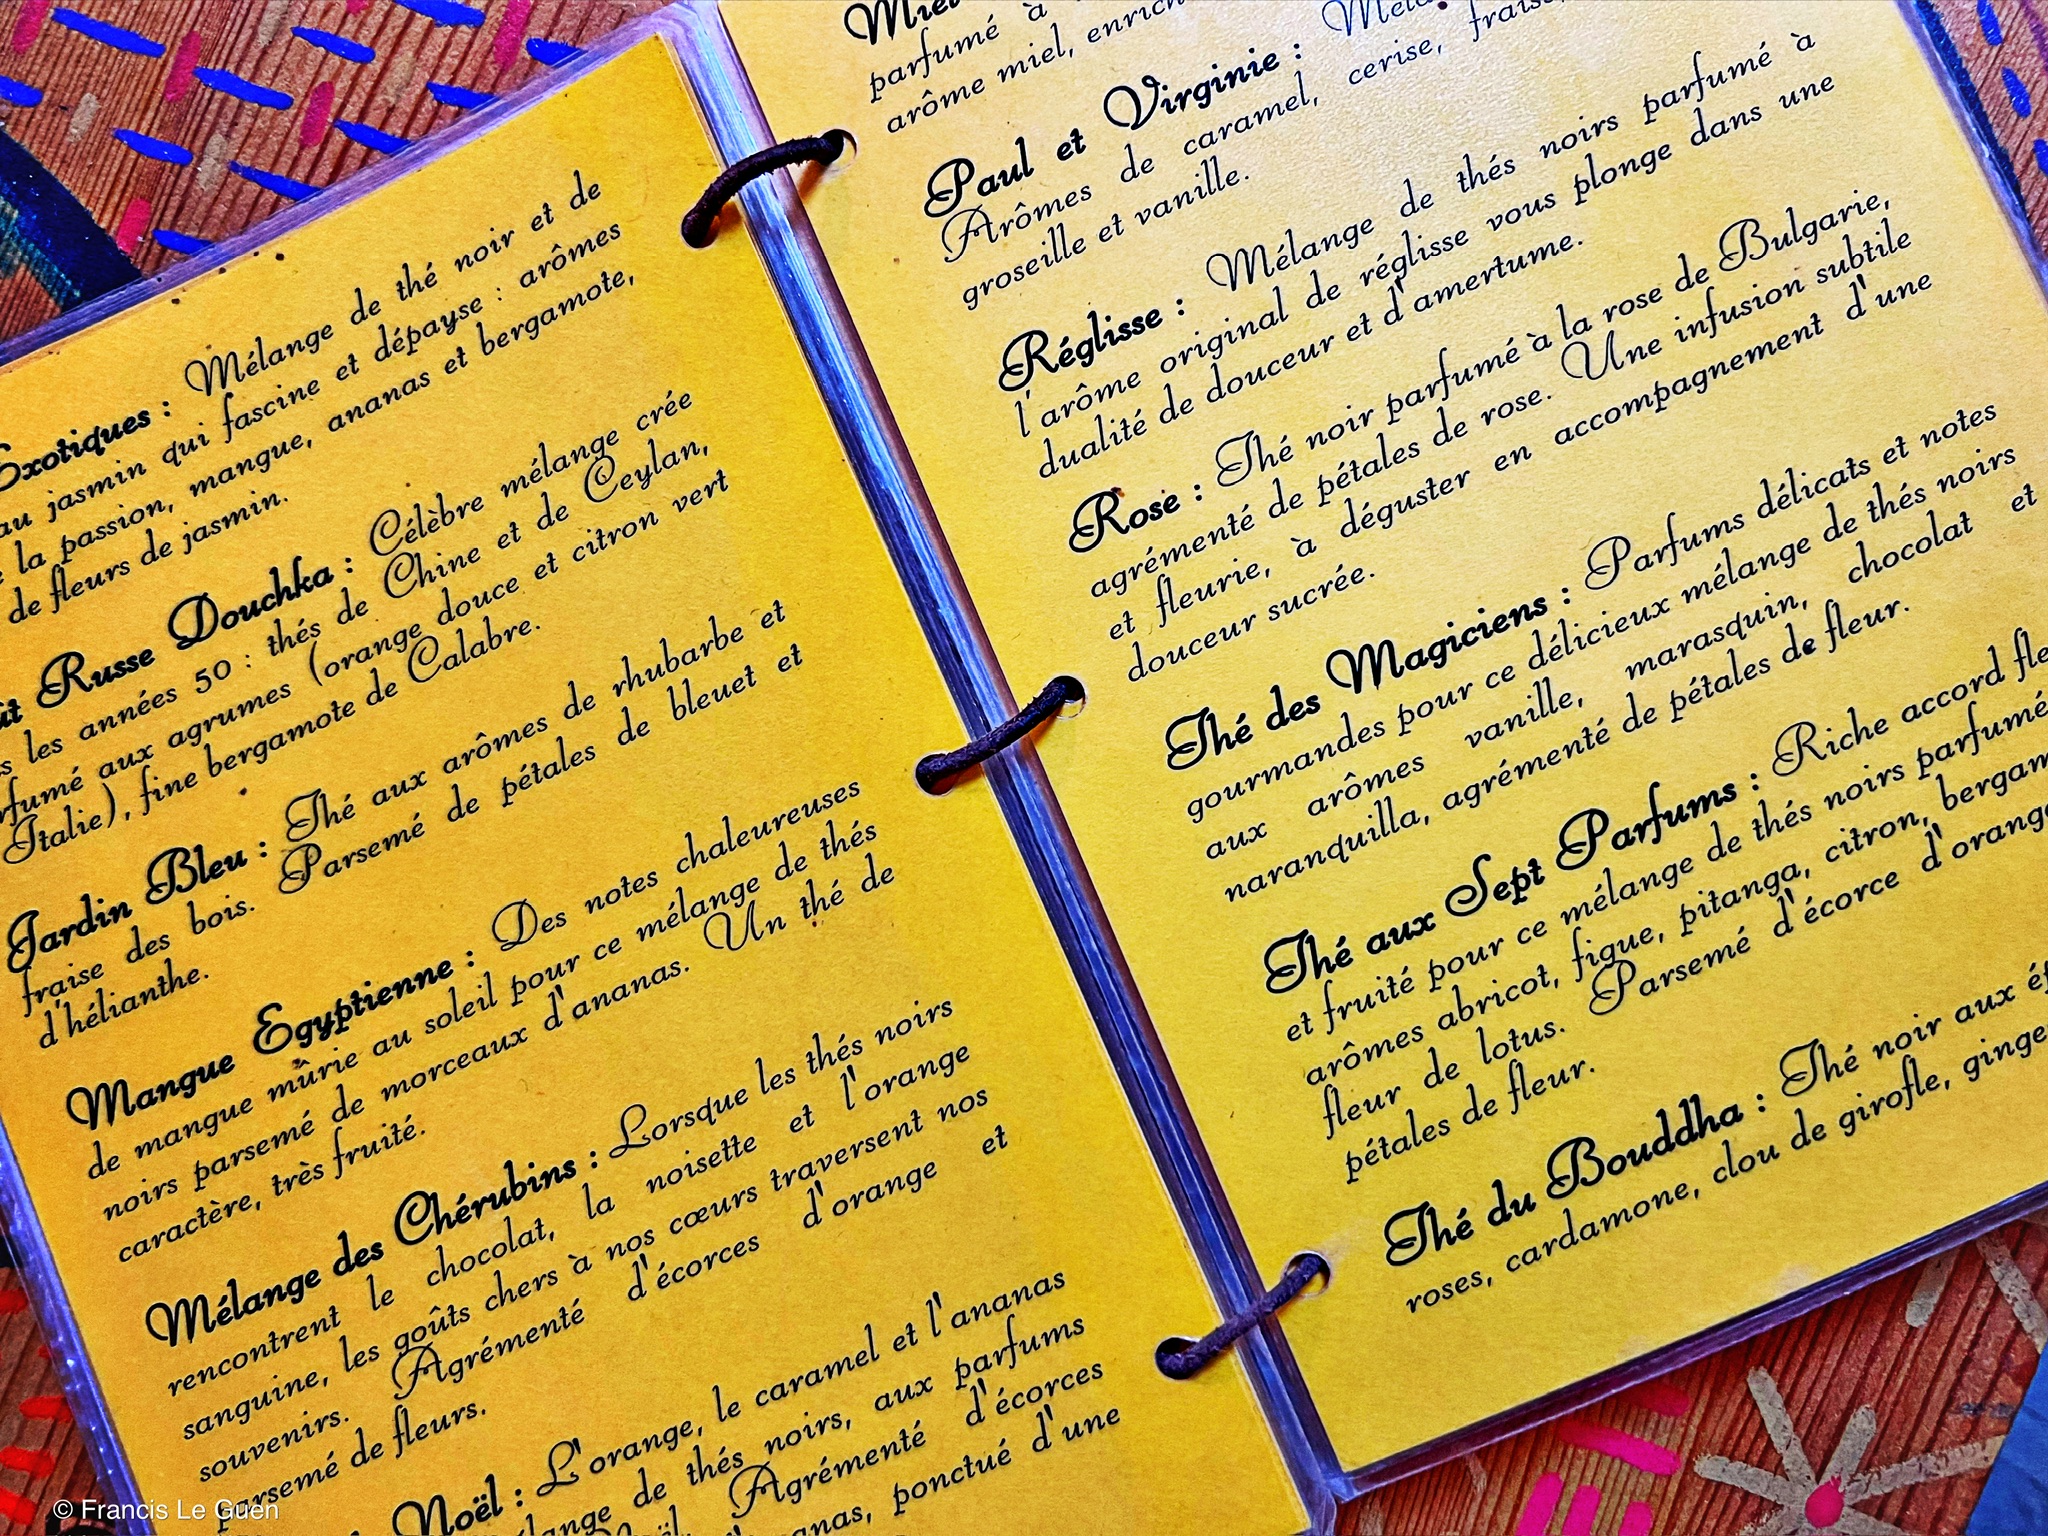 Exotiques : Mélange de thé noir et de
au jasmin qui fascine et dépayse : arômes
la passion, mangue, ananas et bergamote,
de fleurs de jasmin.
Russe Douchka : Célèbre mélange crée
les années 50 : thés de Chine et de Ceylan,
aux agrumes (orange douce et citron vert
Italie), fine bergamote de Calabre.
Jardin Bleu : Thé aux arômes de rhubarbe et
fraise des bois. Parsemé de pétales de bleuet et
d'hélianthe.
Mangue Egyptienne : Des notes chaleureuses
de mangue mûrie au soleil pour ce mélange de thés
noirs parsemé de morceaux d'ananas. Un thé de
caractère, très fruité.
Mélange des Chérubins : Lorsque les thés noirs
rencontrent le chocolat, la noisette et l'orange
sanguine, les goûts chers à nos cœurs traversent nos
souvenirs. Agrémenté d'écorces d'orange et
parsemé de fleurs.
Noël : L'orange, le caramel et l'ananas
mélange de thés noirs, aux parfums
Noël. Agrémenté d'écorces
ananas, ponctué d'une
Miel
parfumé à
arôme miel,
Paul et Virginie :
Arômes de caramel, cerise, fraise,
groseille et vanille.
Réglisse : Mélange de thés noirs parfumé à
l'arôme original de réglisse vous plonge dans une
dualité de douceur et d'amertume.
Rose : Thé noir parfumé à la rose de Bulgarie,
agrémenté de pétales de rose. Une infusion subtile
et fleurie, à déguster en accompagnement d'une
douceur sucrée.
Thé des Magiciens : Parfums délicats et notes
gourmandes pour ce délicieux mélange de thés noirs
aux arômes vanille, marasquin, chocolat et
naranquilla, agrémenté de pétales de fleur.
Thé aux Sept Parfums : Riche accord
et fruité pour ce mélange de thés noirs parfumé
arômes abricot, figue, pitanga, citron,
fleur de lotus. Parsemé d'écorce d'orange
pétales de fleur.
Thé du Bouddha : Thé noir aux
roses, cardamone, clou de girofle,
© Francis Le Guen